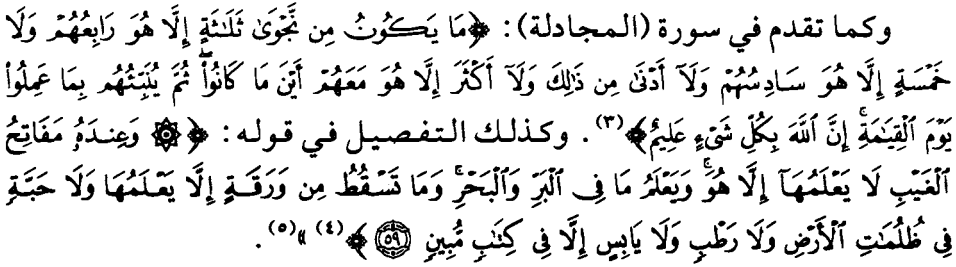 وكما تقدم في سورة (المجادلة): ﴿مَا يَكُونُ مِن نَّجْوَىٰ ثَلَٰثَةٍ إِلَّا هُوَ رَابِعُهُمْ وَلَا
خَمْسَةٍ إِلَّا هُوَ سَادِسُهُمْ وَلَآ أَدْنَىٰ مِن ذَٰلِكَ وَلَآ أَكْثَرَ إِلَّا هُوَ مَعَهُمْ أَيْنَ مَا كَانُوا۟ ۖ ثُمَّ يُنَبِّئُهُم بِمَا عَمِلُوا۟
يَوْمَ ٱلْقِيَٰمَةِ ۚ إِنَّ ٱللَّهَ بِكُلِّ شَىْءٍ عَلِيمٌ﴾(٣). وكذلك التفصيل في قوله: ﴿۞ وَعِندَهُۥ مَفَاتِحُ
ٱلْغَيْبِ لَا يَعْلَمُهَآ إِلَّا هُوَ ۚ وَيَعْلَمُ مَا فِى ٱلْبَرِّ وَٱلْبَحْرِ ۚ وَمَا تَسْقُطُ مِن وَرَقَةٍ إِلَّا يَعْلَمُهَا وَلَا حَبَّةٍ
فِى ظُلُمَٰتِ ٱلْأَرْضِ وَلَا رَطْبٍ وَلَا يَابِسٍ إِلَّا فِى كِتَٰبٍ مُّبِينٍ ۝٥٩﴾(٤)»(٥).